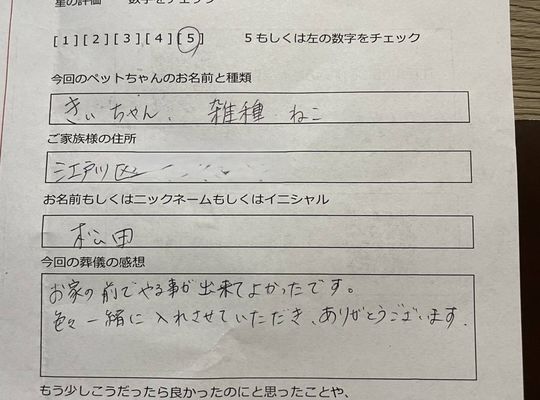 星の評価 数字をチェック
[1][2][3][4][5] 5もしくは左の数字をチェック
今回のペットちゃんのお名前と種類
きぃちゃん、 雑種 ねこ
ご家族様の住所
江戸川区
お名前もしくはニックネームもしくはイニシャル
松田
今回の葬儀の感想
お家の前でやる事が出来てよかったです。
色々一緒に入れさせていただき、ありがとうございます。
もう少しこうだったら良かったのにと思ったことや、